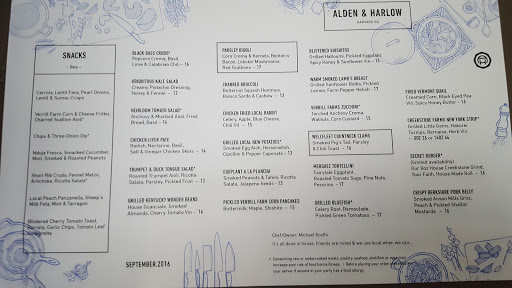 ALDEN & HARLOW
HARVARD SQ.
SNACKS
- 8ea. -
Carrots, Lentil Fava, Pearl Onions,
Lentil & Sumac Crisps
Verrill Farm Corn & Cheese Fritter,
Charred Scallion Aioli
Chips & Three-Onion Dip*
Nduja Fresca, Smacked Cucumber,
Mint, Smoked & Roasted Peanuts
Short Rib Crudo, Fennel Matzo,
Amichake, Ricotta Salata*
Local Peach Panzanella, Sheep's
Milk Feta, Mint & Tarragon
Blistered Cherry Tomato Toast,
Burrata, Garlic Chips, Tomato Leaf
Vinaigrette
BLACK BASS CRUDO*
Popcorn Crema, Basil
Lime & Calabrian Chili - 16
UBIQUITOUS KALE SALAD
Creamy Pistachio Dressing,
Honey & Fennel - 12
HEIRLOOM TOMATO SALAD*
Anchovy & Mustard Aioli, Fried
Bread, Basil - 15
CHICKEN LIVER PATE
Radish, Nectarine, Basil,
Salt & Vinegar Chicken Skins - 14
TRUMPET & DUCK TONGUE SALAD*
Roasted Trumpet Aioli, Ricotta
Salata, Parsley, Pickled Fruit - 12
GRILLED KENTUCKY WONDER BEANS
House Guanciale, Smoked
Almonds, Cherry Tomato Vin - 14
PARSLEY BIGOLI
Corn Crema & Kernels, Benton's
Bacon, Lobster Mushrooms,
Red Scallions - 17
CHARRED BROCCOLI
Butternut Squash Hummus,
Bianco Sardo & Cashew - 13
CHICKEN FRIED LOCAL RABBIT
Celery, Apple, Blue Cheese,
Chili Oil - 15
GRILLED LOCAL NEW POTATOES*
Smoked Egg Aioli, Horseradish,
Capolini & Pepper Caponata - 13
EGGPLANT A LA PLANCHA
Smoked Peanuts & Tahini, Ricotta
Salata, Jalapeno Seeds - 13
PICKLED VERRILL FARM CORN PANCAKES
Buttermilk, Maple, Shishito - 15
BLISTERED SHISHITOS
Grilled Halloumi, Pickled Eggplant,
Spicy Honey & Sunflower Vin - 15
WARM SMOKED LAMB'S BREAST
Grilled Sunflower Bulbs, Pickled
Lemon, Farm Pepper Relish - 17
VERRILL FARMS ZUCCHINI*
Torched Anchovy Crema,
Walnuts, Corn Custard - 13
WELLFLEET COUNTNECK CLAMS
Smoked Pig's Tail, Parsley
& Chili Toast - 16
MERGUEZ TORTELLINI
Fairytale Eggplant,
Roasted Tomato Sugo, Pine Nuts,
Pecorino - 17
GRILLED BLUEFISH*
Celery Root, Remoulade,
Pickled Green Tomatoes - 17
FRIED VERMONT QUAIL
Creamed Corn, Black Eyed Pea
Vin, Spicy Honey Butter - 16
GREENSTONE FARMS NEW YORK STRIP*
Grilled Little Gems, Hakurei
Turnips, Bernaise, Herb Vin
SECRET BURGER*
(limited availability)
Our 8oz House Creekstone Grind,
Your Faith, House Made Roll - 18
CRISPY BERKSHIRE PORK BELLY
Smoked Anson Mills Grits,
Peach & Pickled Shallot
Mostarda - 16
Chef/Owner: Michael Scelfo
It's all done in house, friends are rated & we use local when we can...
SEPTEMBER.2016